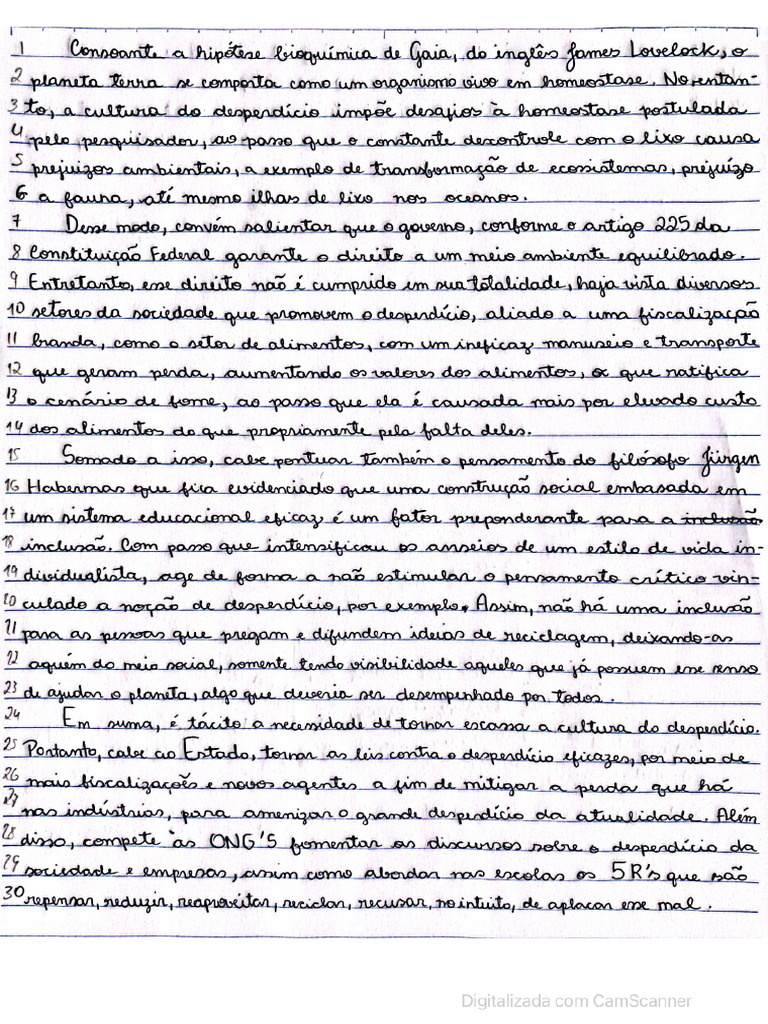 1 Consoante a hipótese bioquímica de Gaia, do inglês James Lovelock, o
2 planeta terra se comporta como um organismo vivo em homeostase. No entan-
3 to, a cultura do desperdício impõe desafios à homeostase postulada
4 pelo pesquisador, ao passo que o constante descontrole com o lixo causa
5 prejuizos ambientais, a exemplo de transformação de ecossistemas, prejuízo
6 a fauna, até mesmo ilhas de lixo nos oceanos.
7 Desse modo, convém salientar que o governo, conforme o artigo 225 da
8 Constituição Federal garante o direito a um meio ambiente equilibrado.
9 Entretanto, esse direito não é cumprido em sua totalidade, haja vista diversos
10 setores da sociedade que promovem o desperdício, aliado a uma fiscalização
11 branda, como o setor de alimentos, com um ineficaz manuseio e transporte
12 que geram perda, aumentando os valores dos alimentos, o que ratifica
13 o cenário de fome, ao passo que ela é causada mais por elevado custo
14 dos alimentos do que propriamente pela falta deles.
15 Somado a isso, cabe pontuar também o pensamento do filósofo Jürgen
16 Habermas que fica evidenciado que uma construção social embasada em
17 um sistema educacional eficaz é um fator preponderante para a inclusão
18 inclusão. Com passo que intensificou os anseios de um estilo de vida in-
19 dividualista, age de forma a não estimular o pensamento crítico vin-
20 culado a noção de desperdício, por exemplo. Assim, não há uma inclusão
21 para as pessoas que pregam e difundem ideias de reciclagem, deixando-as
22 aquém do meio social, somente tendo visibilidade aqueles que já possuem esse senso
23 de ajudar o planeta, algo que deveria ser desempenhado por todos.
24 Em suma, é tácito a necessidade de tornar escassa a cultura do desperdício.
25 Portanto, cabe ao Estado, tornar as leis contra o desperdício eficazes, por meio de
26 mais fiscalizações e novos agentes a fim de mitigar a perda que há
27 nas indústrias, para amenizar o grande desperdício da atualidade. Além
28 disso, compete às ONG'S fomentar os discursos sobre o desperdício da
29 sociedade e empresas, assim como abordar nas escolas os 5R's que são
30 repensar, reduzir, reaproveitar, reciclar, recusar, no intuito, de aplacar esse mal.
Digitalizada com CamScanner